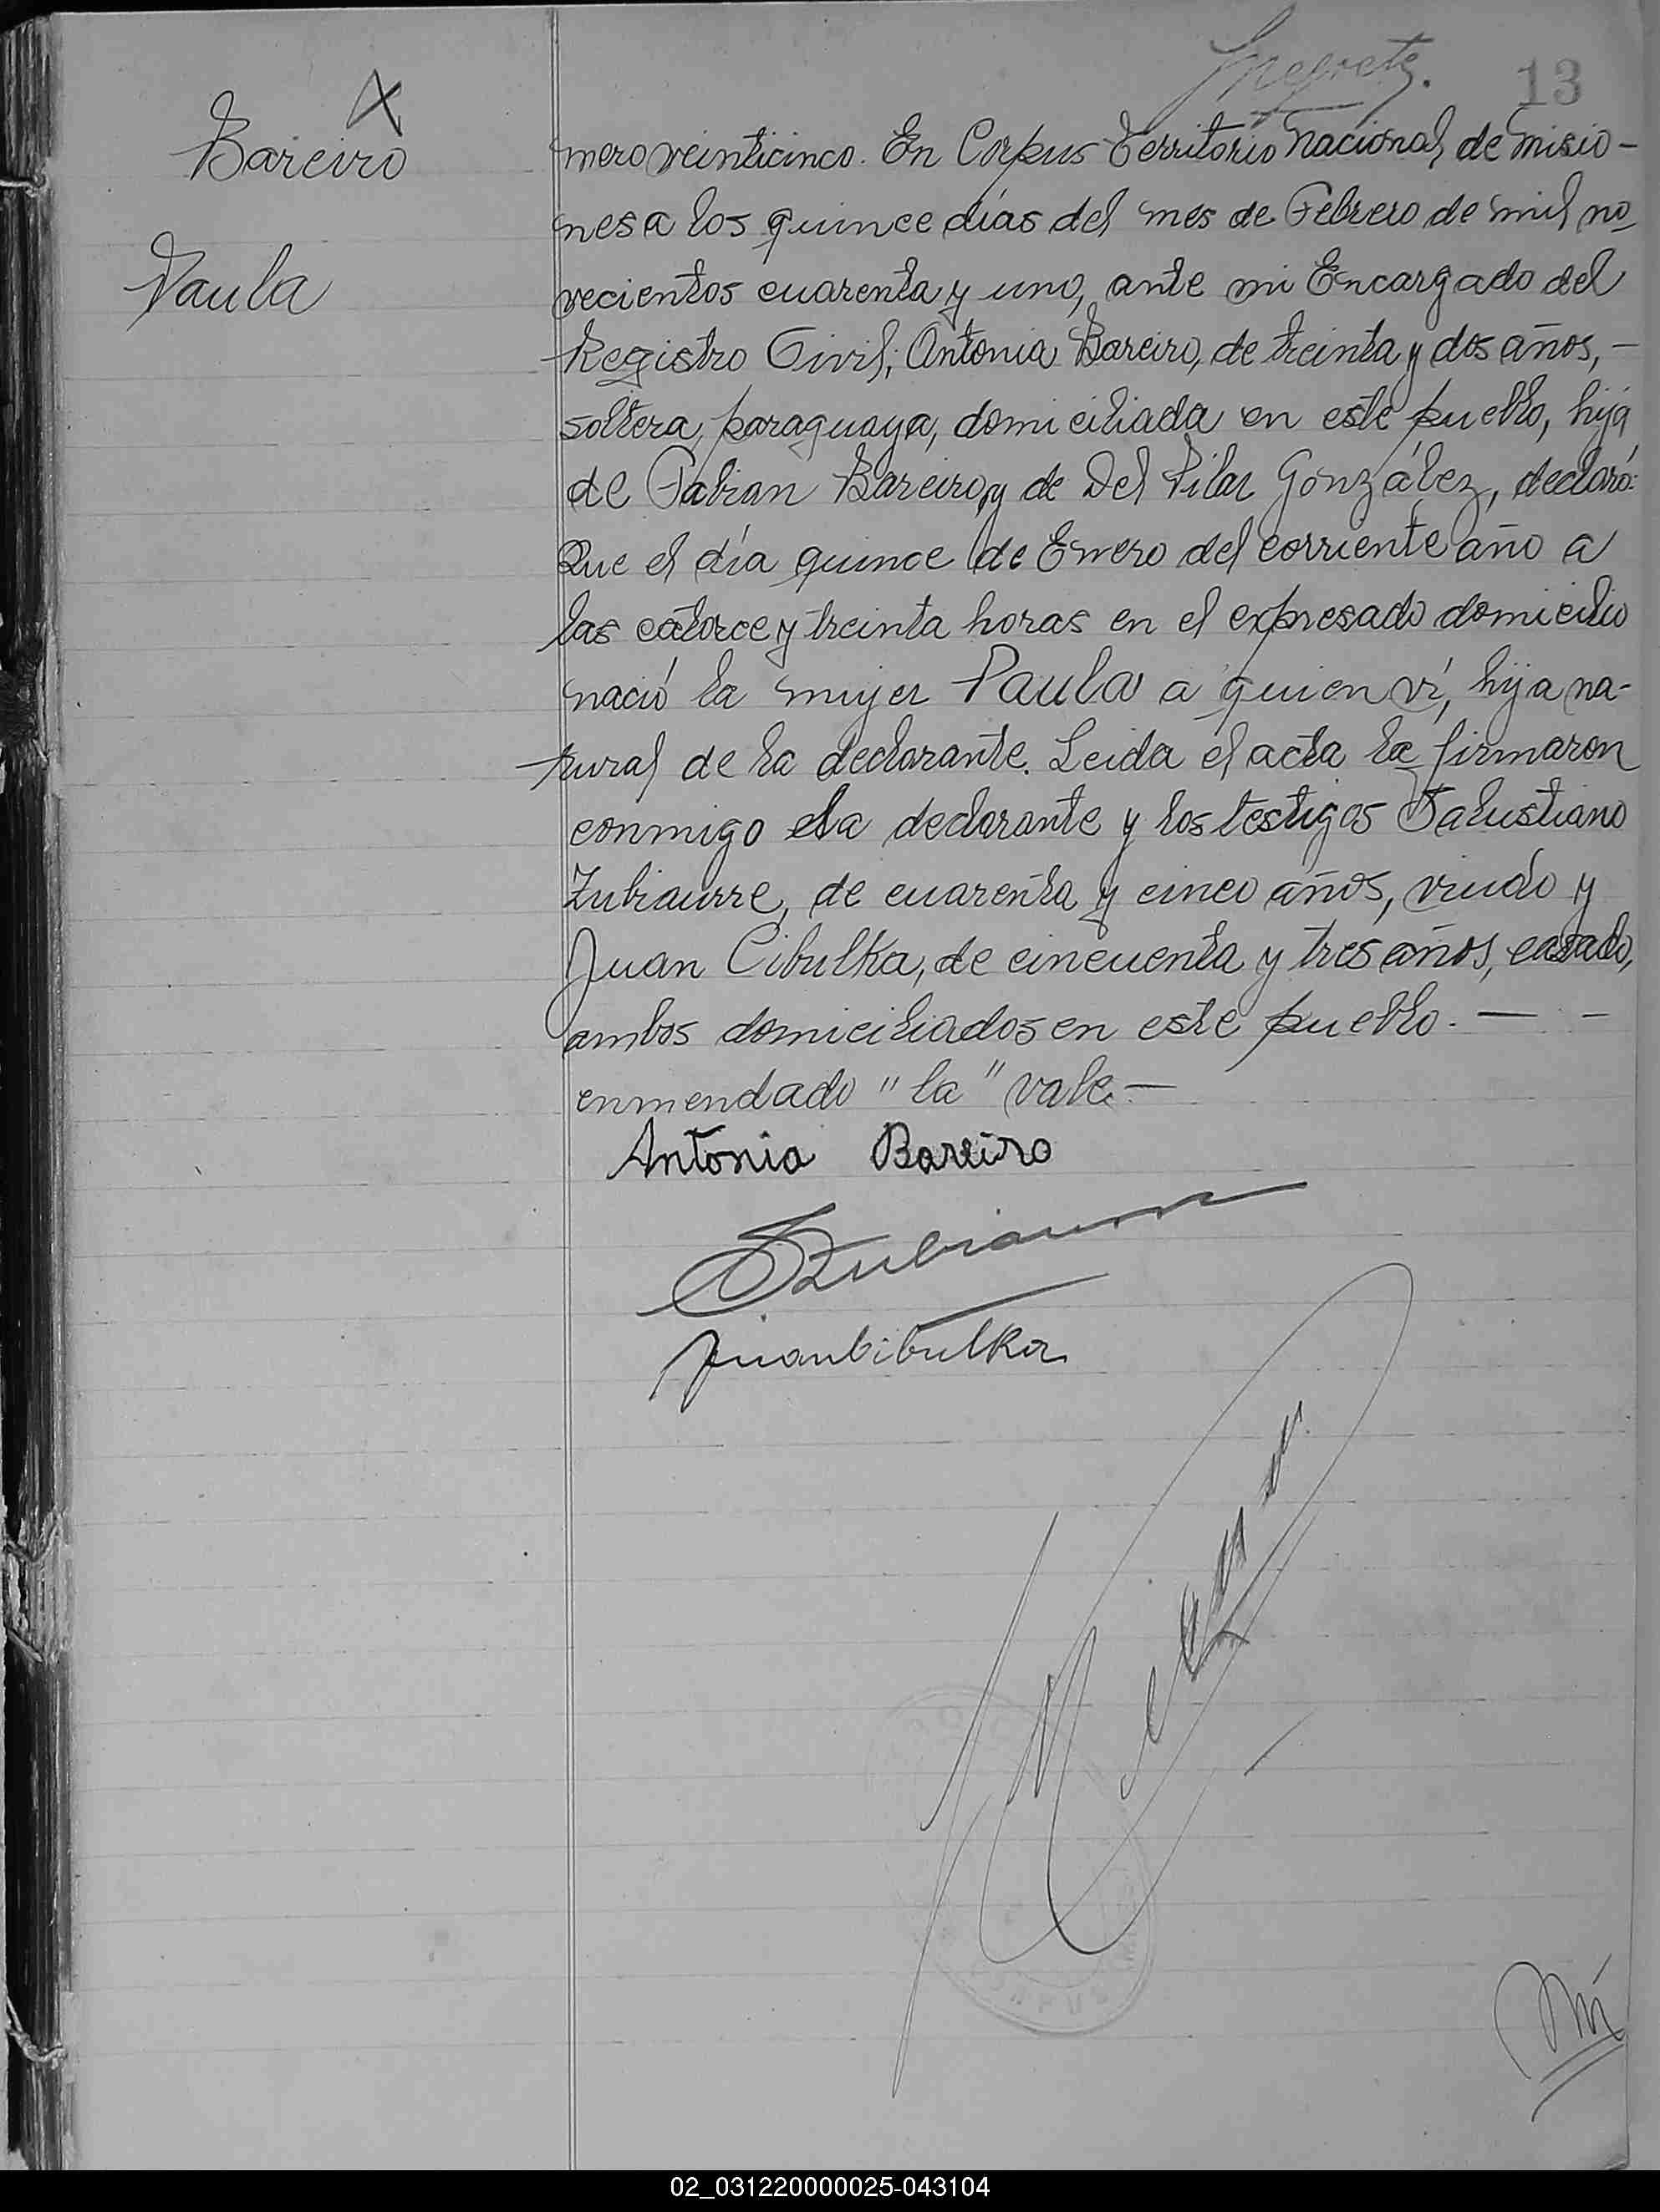 13
X
Bareiro
Paula
mero veinticinco. En Corpus Territorio Nacional de Misio-
nes a los quince días del mes de Febrero de mil no-
vecientos cuarenta y uno, ante mi Encargado del
Registro Civil; Antonia Bareiro, de treinta y dos años, -
soltera, paraguaya, domiciliada en este pueblo, hija
de Fabian Bareiro, y de Del Pilar González, declaró:
Que el día quince de Enero del corriente año a
las catorce y treinta horas en el expresado domicilio
nació la mujer Paula a quien ví, hija na-
tural de la declarante. Leida el acta la firmaron
conmigo la declarante y los testigos Salustiano
Zubiaurre, de cuarenta y cinco años, viudo y
Juan Cibulka, de cincuenta y tres años, casado,
ambos domiciliados en este pueblo. — -
enmendado "la" vale. —
Antonia Bareiro
S Zubiaurre
Juan Cibulka
CORPUS
02_031220000025-043104